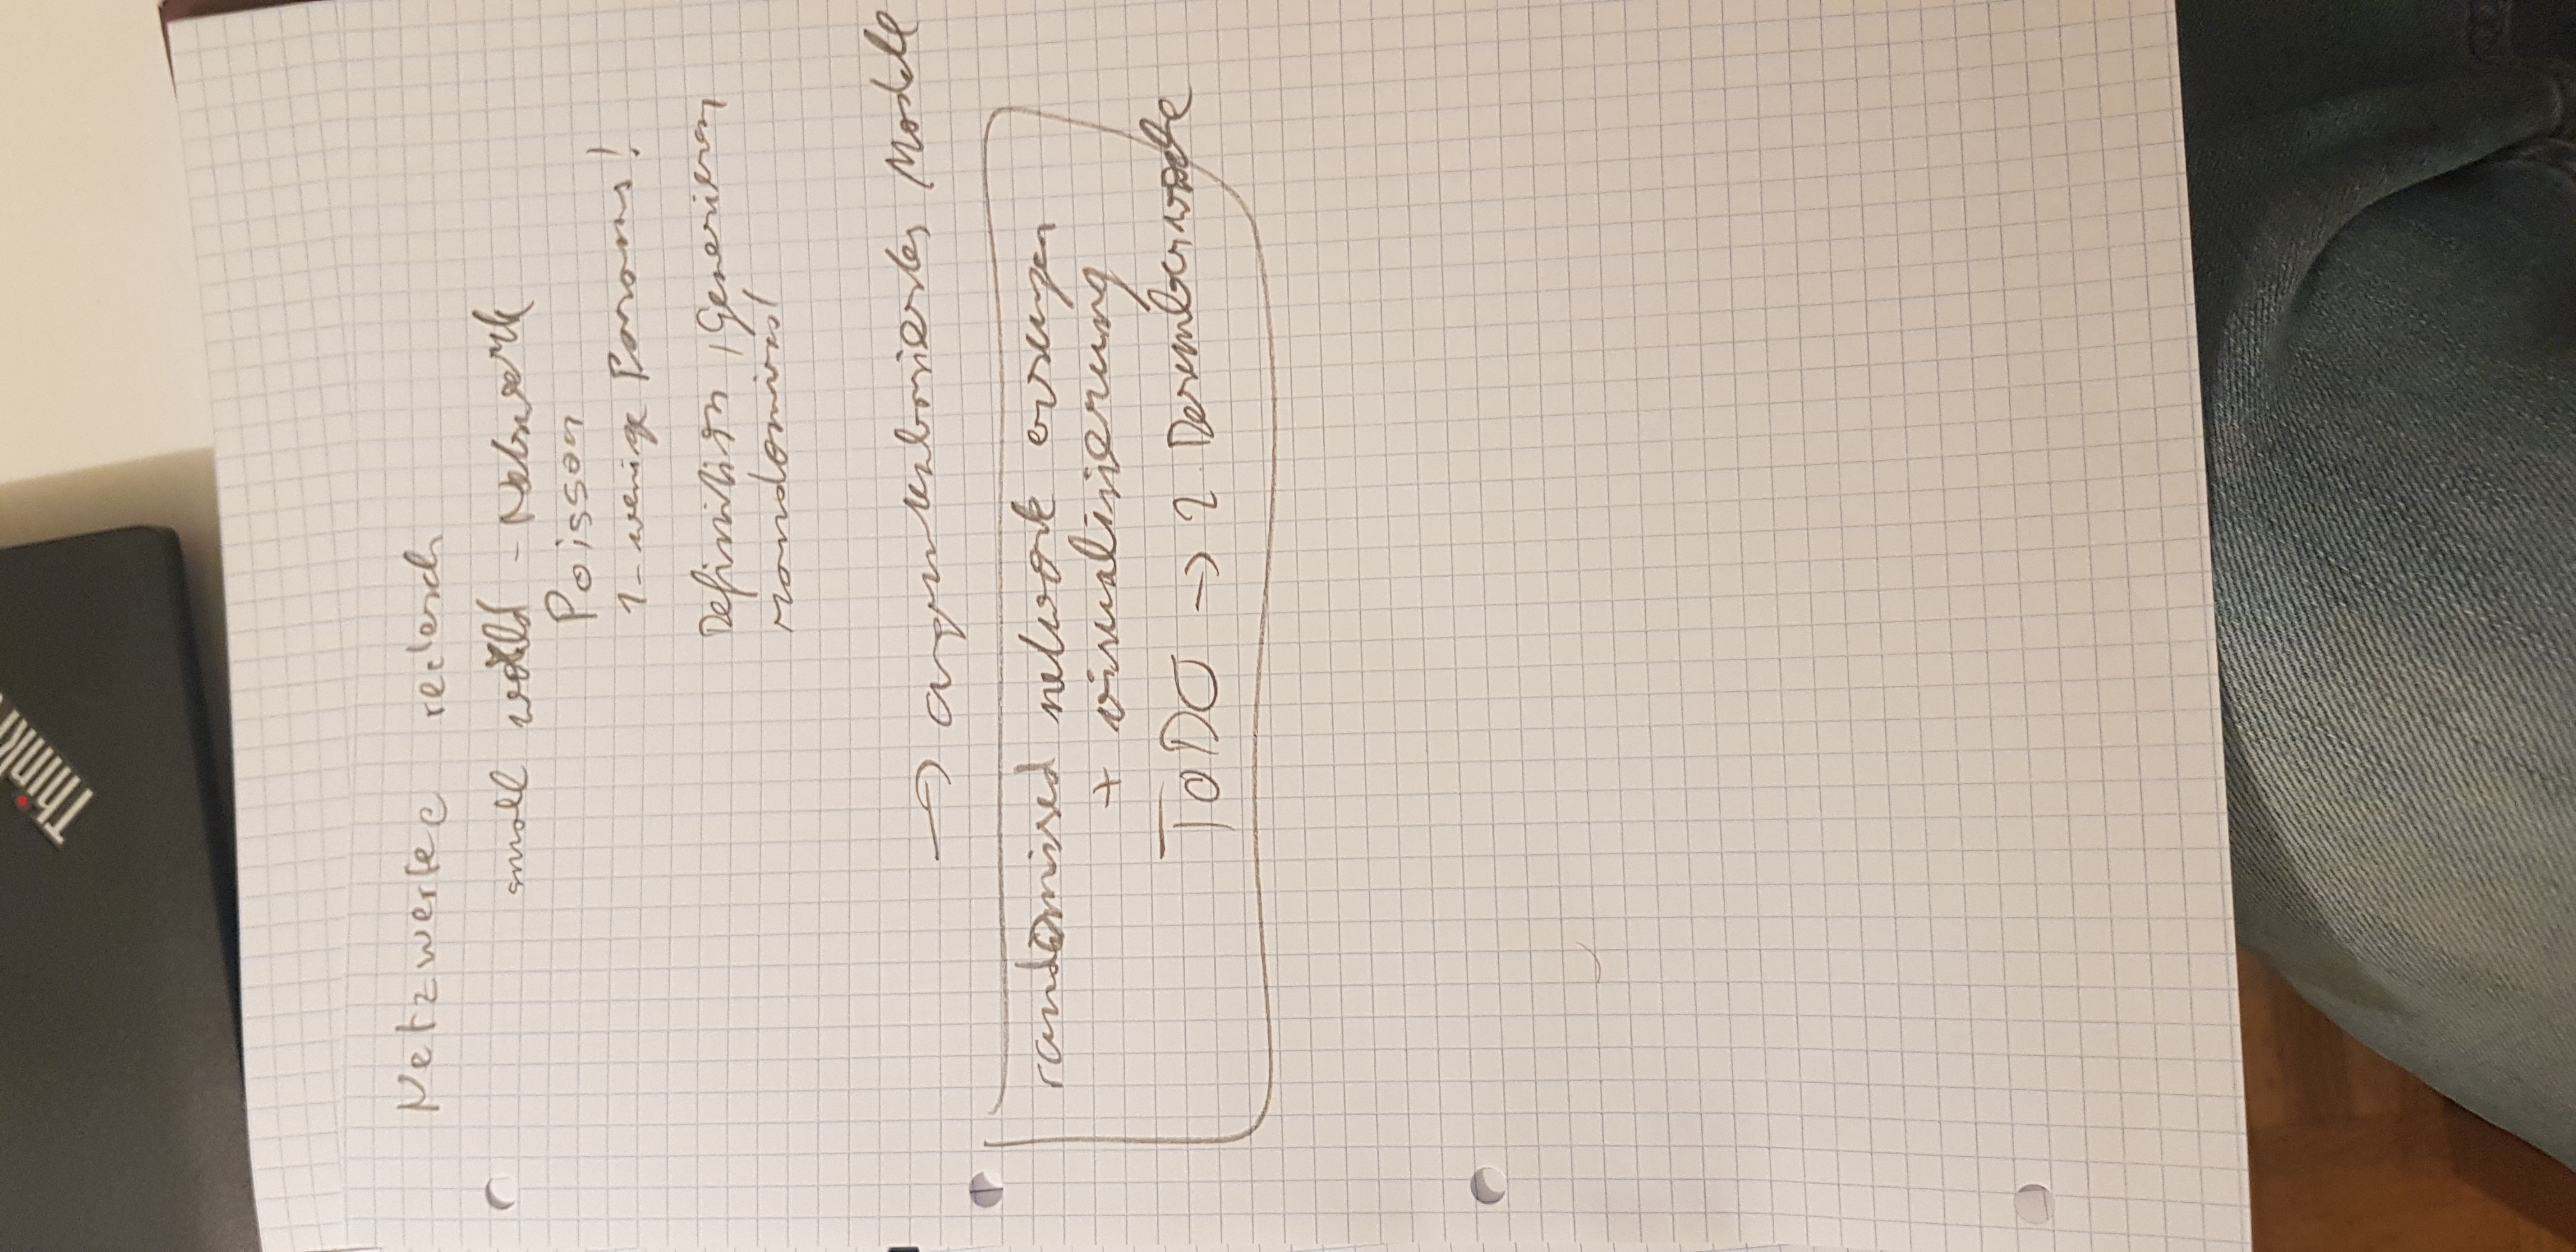 Think
Netzwerke
small world - Network
Poisson
1 - wenige Params!
Definition, Generieren
randomized
→ agentenbasiertes Modell
randomised network erzeugen
+ visualisierung
ToDO → 2 Dezemberwoche